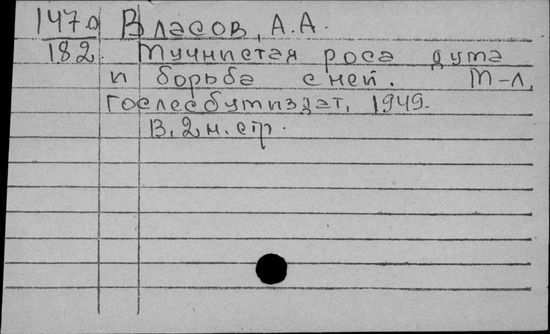 147.0 Власов, А.А.
182. Мучнистая роса дуба
и борьба с ней. М-Л,
Гослесбумиздат, 1949.
В, 2 н. стр.